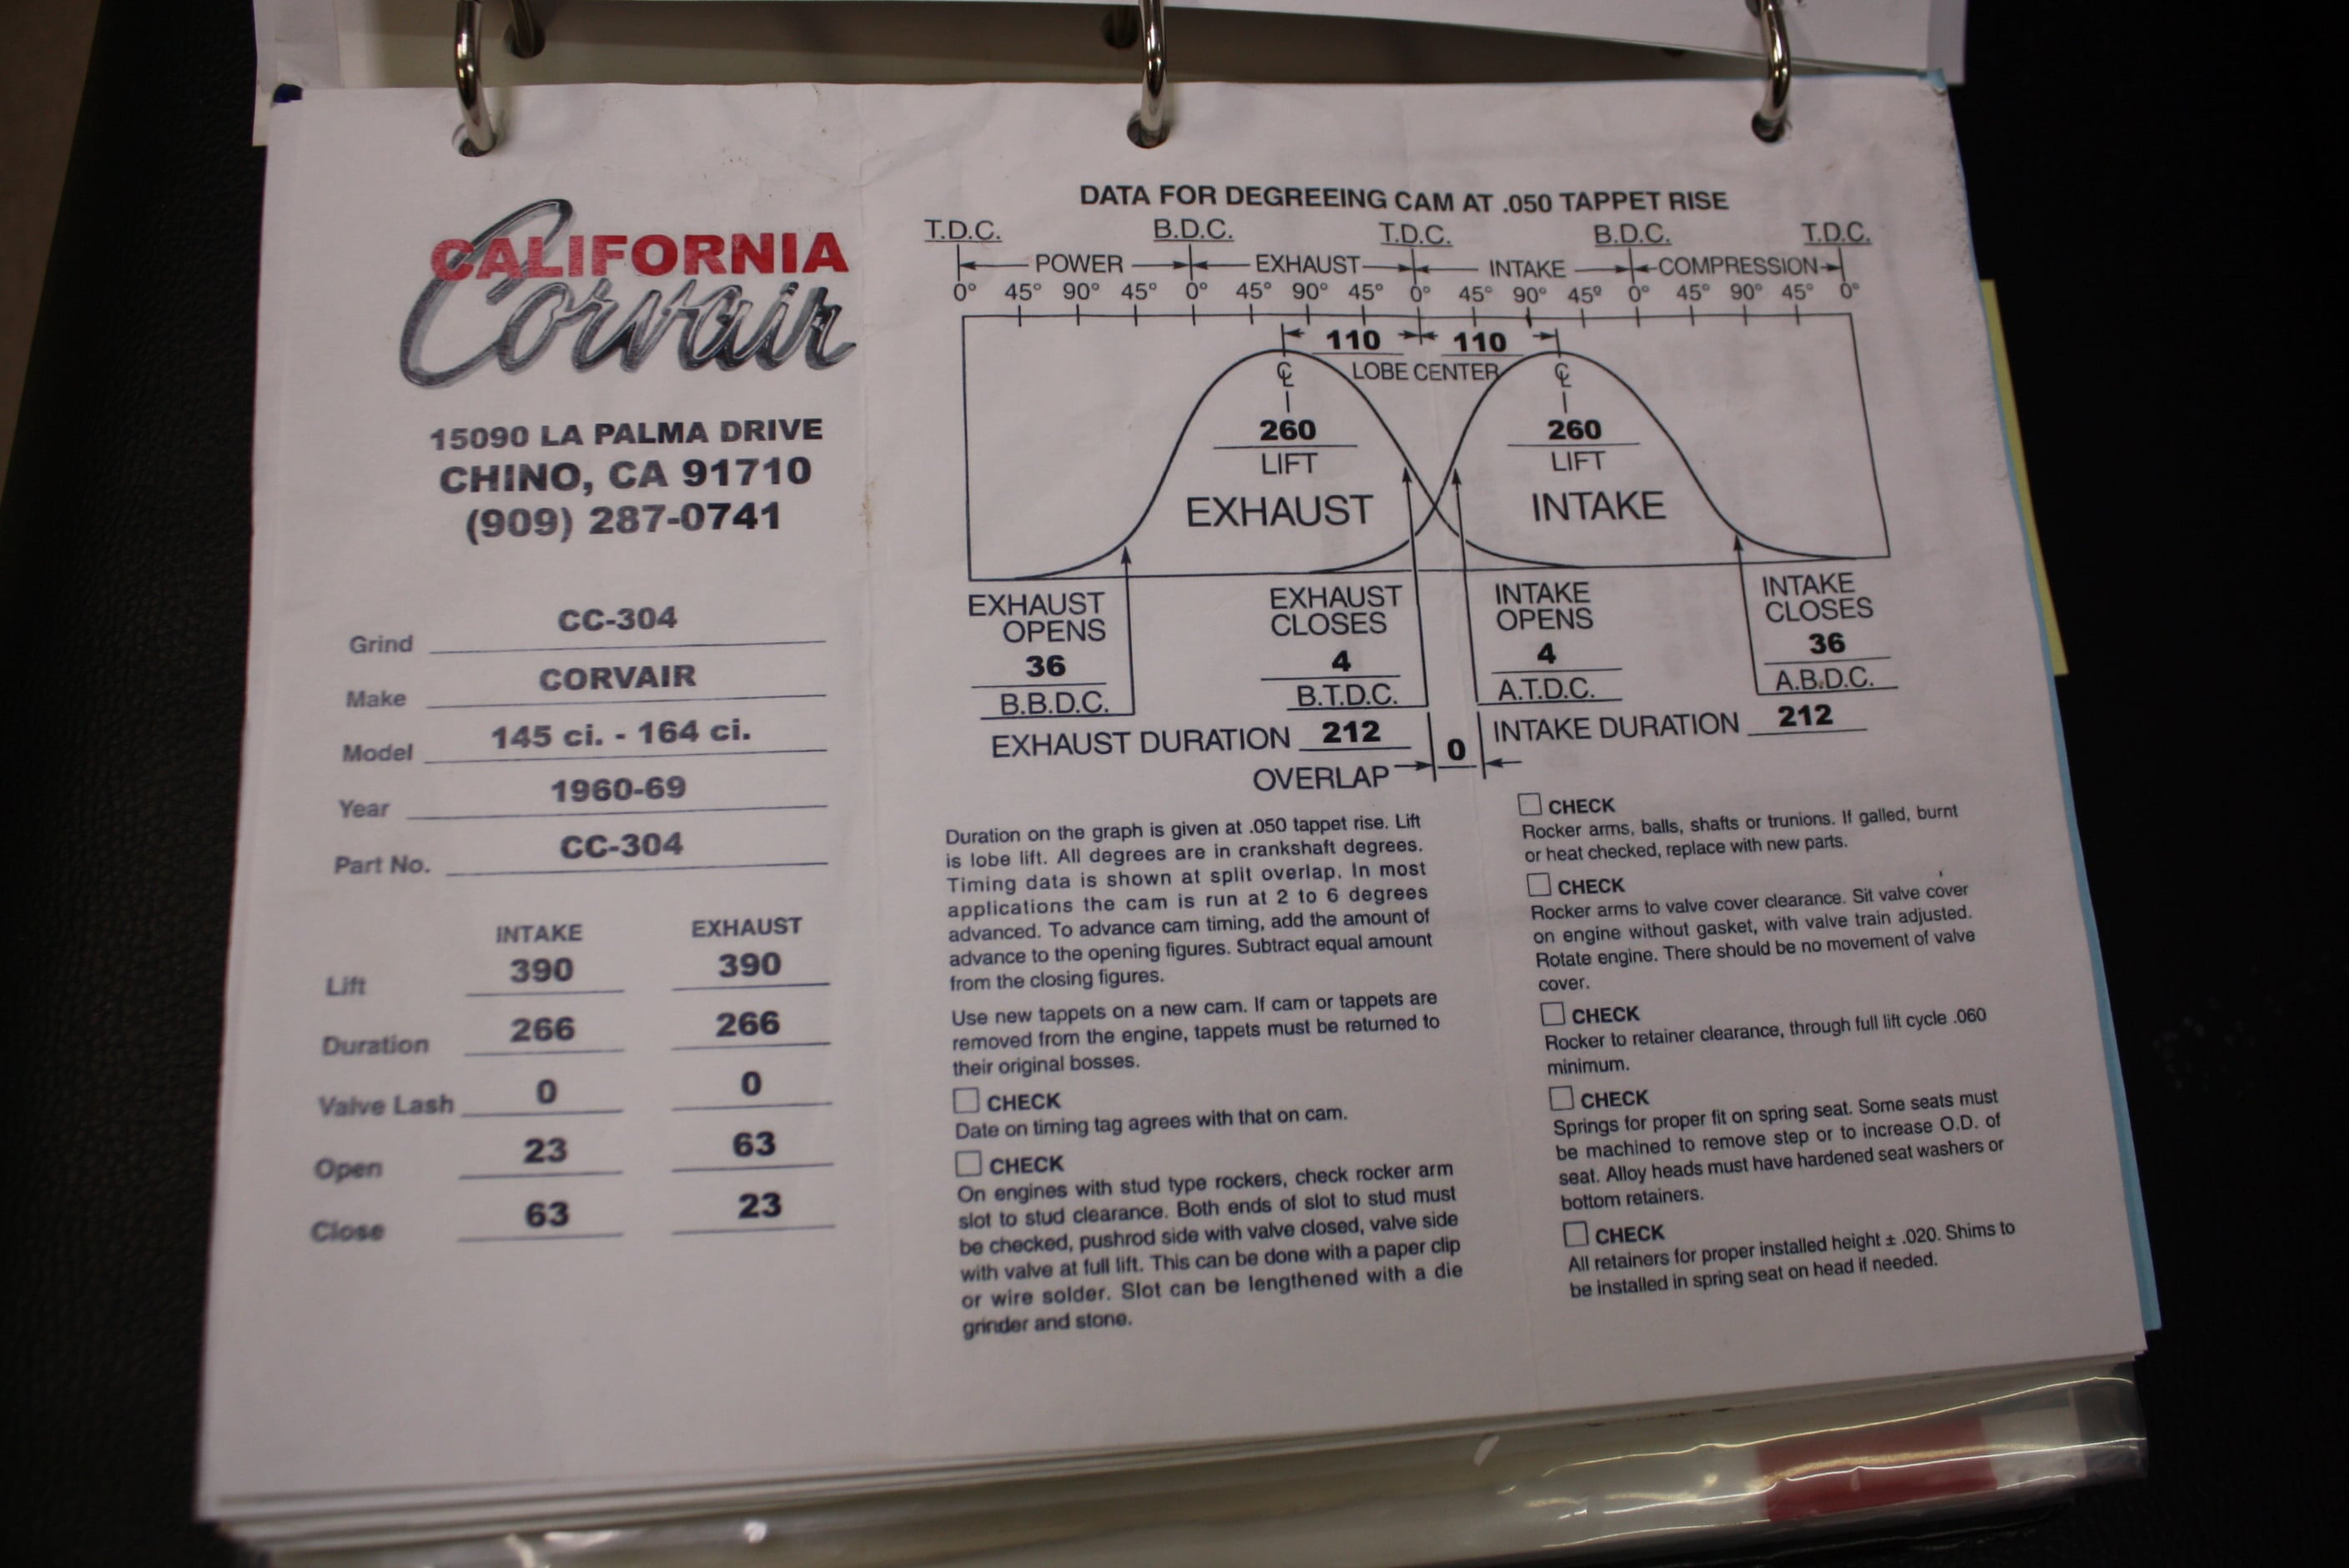 CALIFORNIA
Corvair
15090 LA PALMA DRIVE
CHINO, CA 91710
(909) 287-0741
Grind CC-304
Make CORVAIR
Model 145 ci. - 164 ci.
Year 1960-69
Part No. CC-304
INTAKE EXHAUST
Lift 390 390
Duration 266 266
Valve Lash 0 0
Open 23 63
Close 63 23
DATA FOR DEGREEING CAM AT .050 TAPPET RISE
T.D.C. B.D.C. T.D.C. B.D.C. T.D.C.
POWER EXHAUST INTAKE COMPRESSION
0° 45° 90° 45° 0° 45° 90° 45° 0° 45° 90° 45° 0° 45° 90° 45° 0°
110 110
LOBE CENTER
℄ ℄
260 260
LIFT LIFT
EXHAUST INTAKE
EXHAUST
OPENS
36
B.B.D.C.
EXHAUST
CLOSES
4
B.T.D.C.
INTAKE
OPENS
4
A.T.D.C.
INTAKE
CLOSES
36
A.B.D.C.
EXHAUST DURATION 212
INTAKE DURATION 212
OVERLAP 0
Duration on the graph is given at .050 tappet rise. Lift
is lobe lift. All degrees are in crankshaft degrees.
Timing data is shown at split overlap. In most
applications the cam is run at 2 to 6 degrees
advanced. To advance cam timing, add the amount of
advance to the opening figures. Subtract equal amount
from the closing figures.
Use new tappets on a new cam. If cam or tappets are
removed from the engine, tappets must be returned to
their original bosses.
CHECK
Date on timing tag agrees with that on cam.
CHECK
On engines with stud type rockers, check rocker arm
slot to stud clearance. Both ends of slot to stud must
be checked, pushrod side with valve closed, valve side
with valve at full lift. This can be done with a paper clip
or wire solder. Slot can be lengthened with a die
grinder and stone.
CHECK
Rocker arms, balls, shafts or trunions. If galled, burnt
or heat checked, replace with new parts.
CHECK
Rocker arms to valve cover clearance. Sit valve cover
on engine without gasket, with valve train adjusted.
Rotate engine. There should be no movement of valve
cover.
CHECK
Rocker to retainer clearance, through full lift cycle .060
minimum.
CHECK
Springs for proper fit on spring seat. Some seats must
be machined to remove step or to increase O.D. of
seat. Alloy heads must have hardened seat washers or
bottom retainers.
CHECK
All retainers for proper installed height ± .020. Shims to
be installed in spring seat on head if needed.